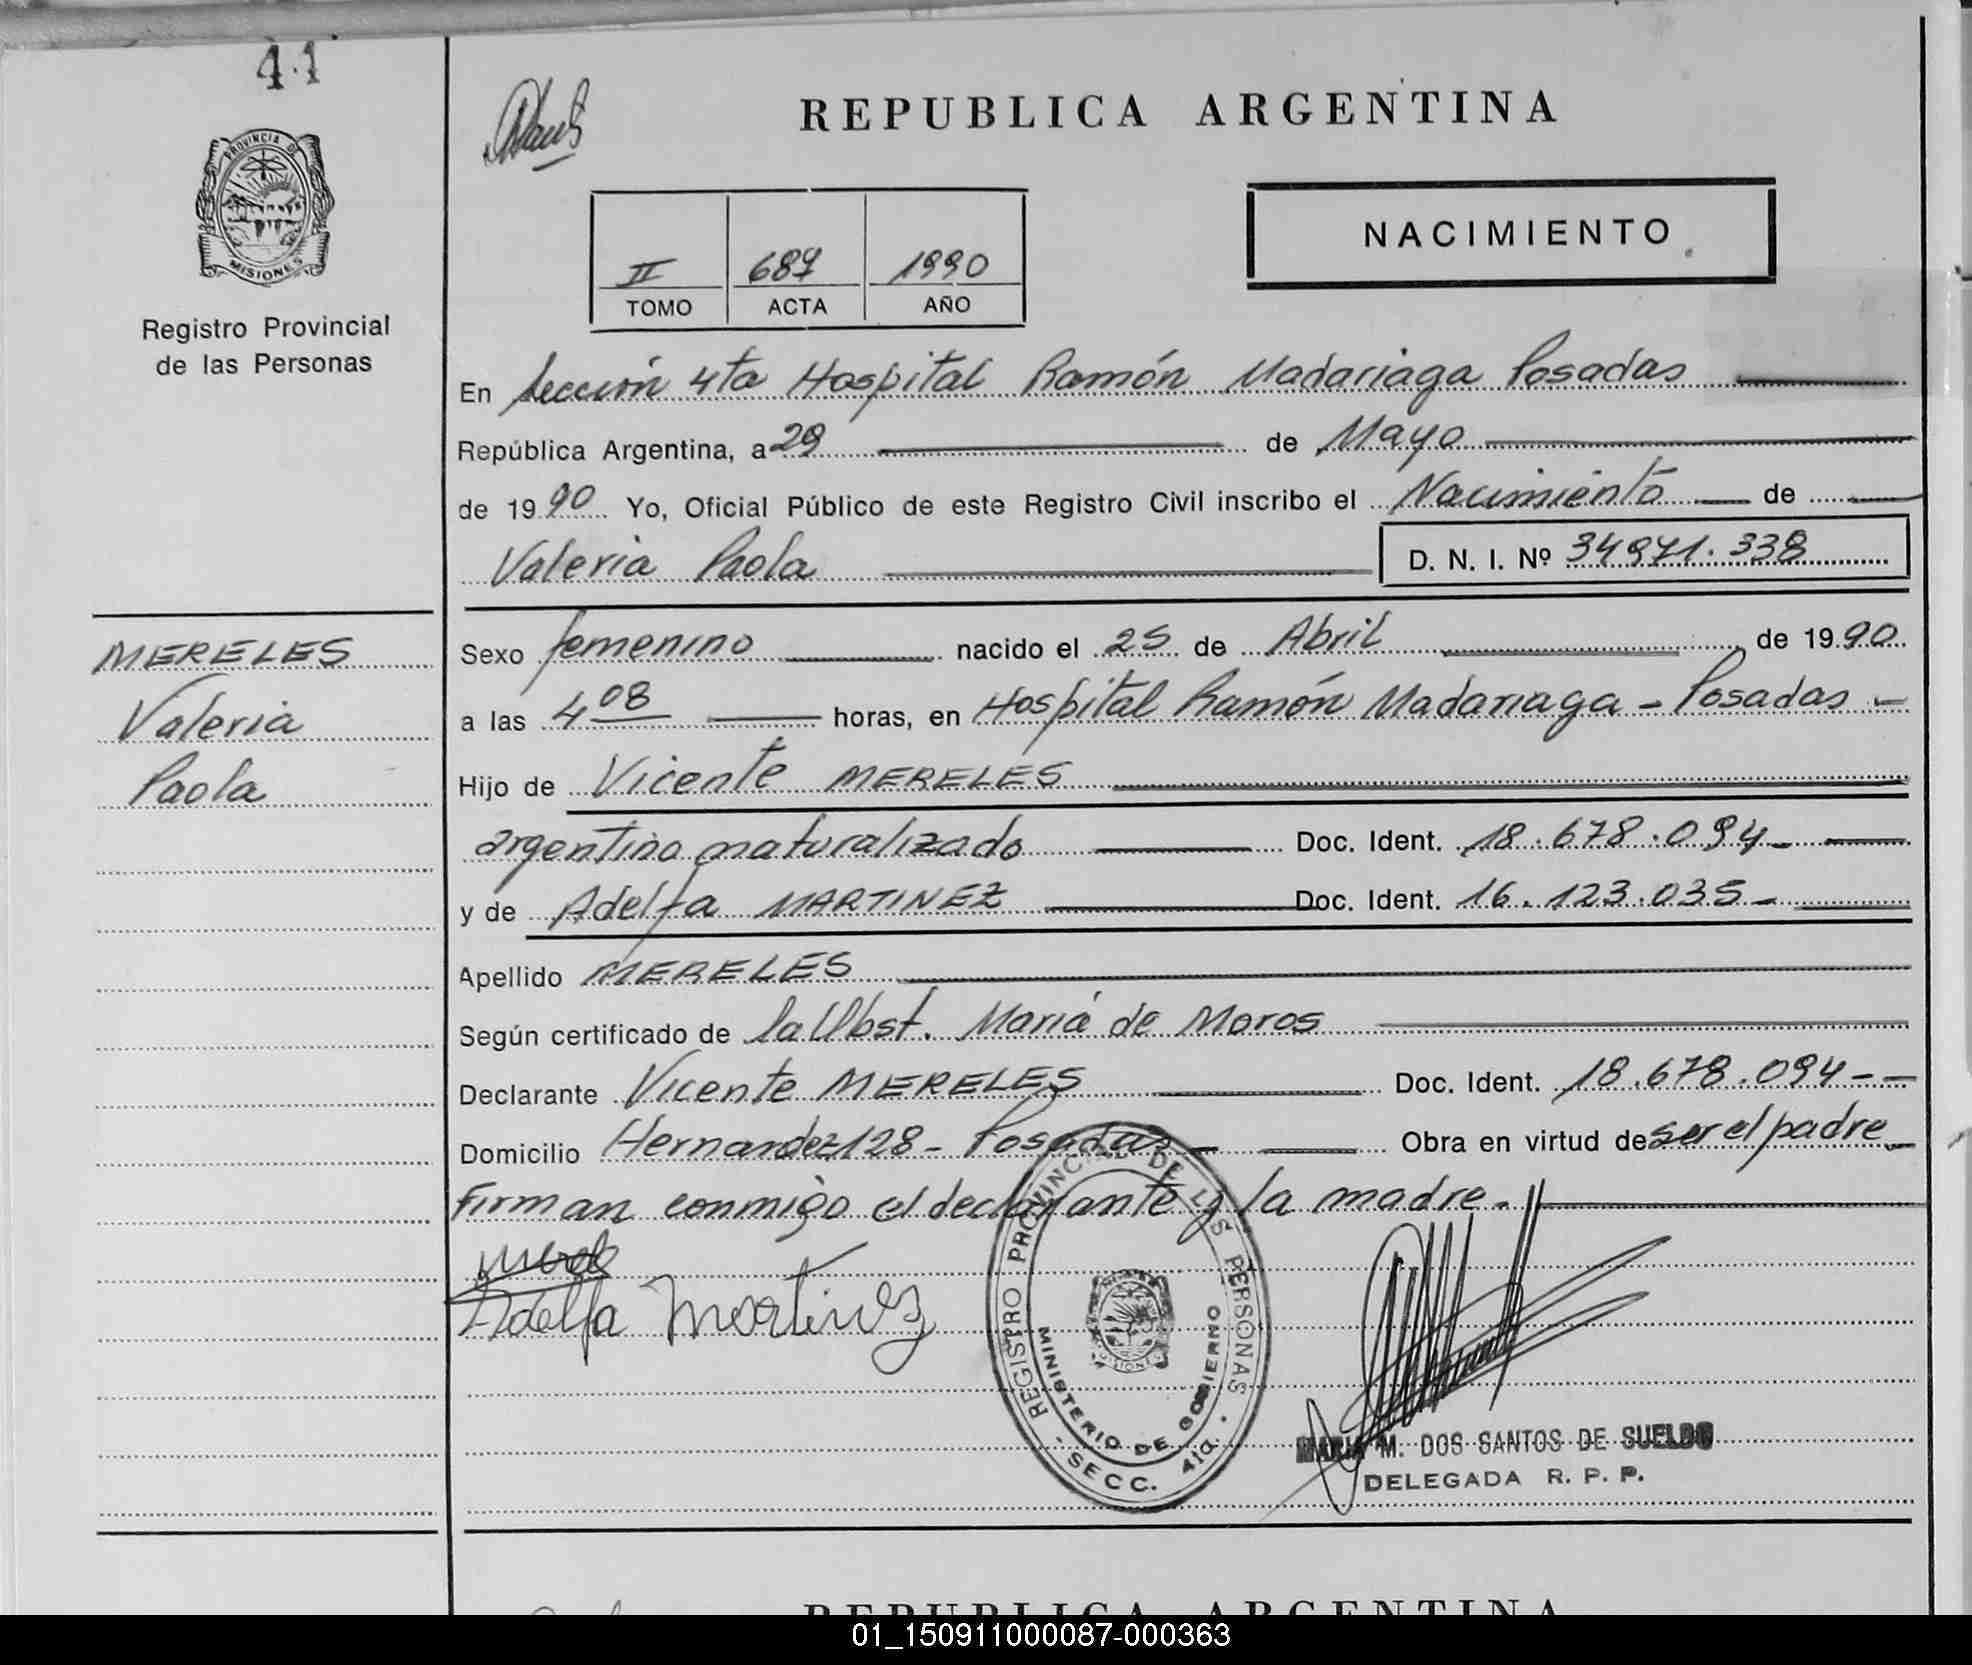 41
REPUBLICA ARGENTINA
PROVINCIA DE
MISIONES
Registro Provincial
de las Personas
NACIMIENTO
II 687 1990
TOMO ACTA AÑO
En Sección 4ta Hospital Ramón Madariaga Posadas
República Argentina, a 29 de Mayo
de 1990 Yo, Oficial Público de este Registro Civil inscribo el Nacimiento de
Valeria Paola D. N. I. Nº 34971.338
MERELES
Valeria
Paola
Sexo femenino nacido el 25 de Abril de 1990
a las 4 08 horas, en Hospital Ramón Madariaga - Posadas -
Hijo de Vicente MERELES
argentino naturalizado Doc. Ident. 18.678.094-
y de Adelfa MARTINEZ Doc. Ident. 16.123.035-
Apellido MERELES
Según certificado de la Obst. María de Moros
Declarante Vicente MERELES Doc. Ident. 18.678.094--
Domicilio Hernandez 128 - Posadas - Obra en virtud de ser el padre
Firman conmigo el declarante y la madre.-
Adelfa Martinez
REGISTRO PROVINCIAL DE LAS PERSONAS
MINISTERIO DE GOBIERNO
- SECC. 4ta. -
MARIA M. DOS SANTOS DE SUELDO
DELEGADA R. P. P.
REPUBLICA ARGENTINA
01_150911000087-000363